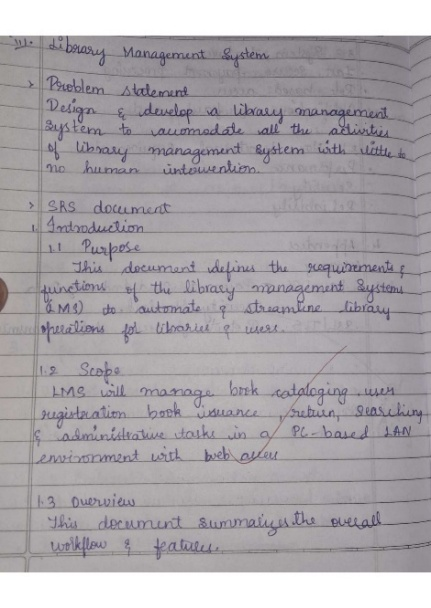 III. Library Management System
> Problem statement
Design & develop a library management
system to accomodate all the activities
of library management system with little to
no human intervention.
> SRS document
1. Introduction
1.1 Purpose
This document defines the requirements &
functions of the library management Systems
(LMS) to automate & streamline library
operations for libraries & users.
1.2 Scope
LMS will manage book cataloging, user
registration book issuance, return, searching
& administrative tasks in a PC-based LAN
environment with web access
1.3 Overview
This document summarizes the overall
workflow & features.